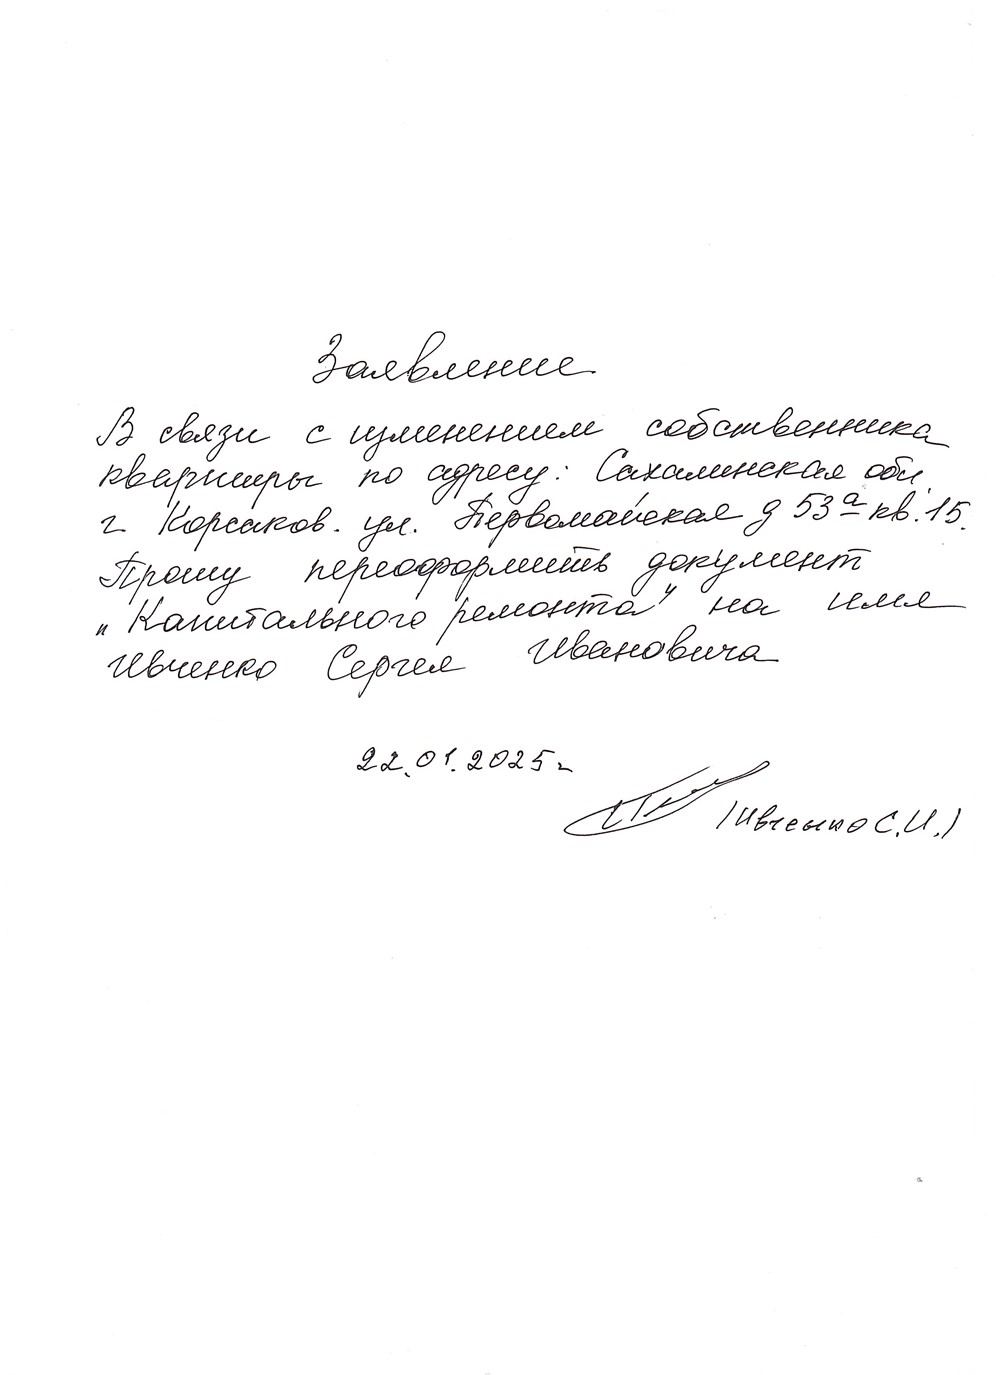 Заявление
В связи с изменением собственника
квартиры по адресу: Сахалинская обл.
г Корсаков. ул. Первомайская д 53а кв. 15.
Прошу переоформить документ
"Капитального ремонта" на имя
Ивченко Сергея Ивановича
22.01.2025г
(Ивченко С.И.)